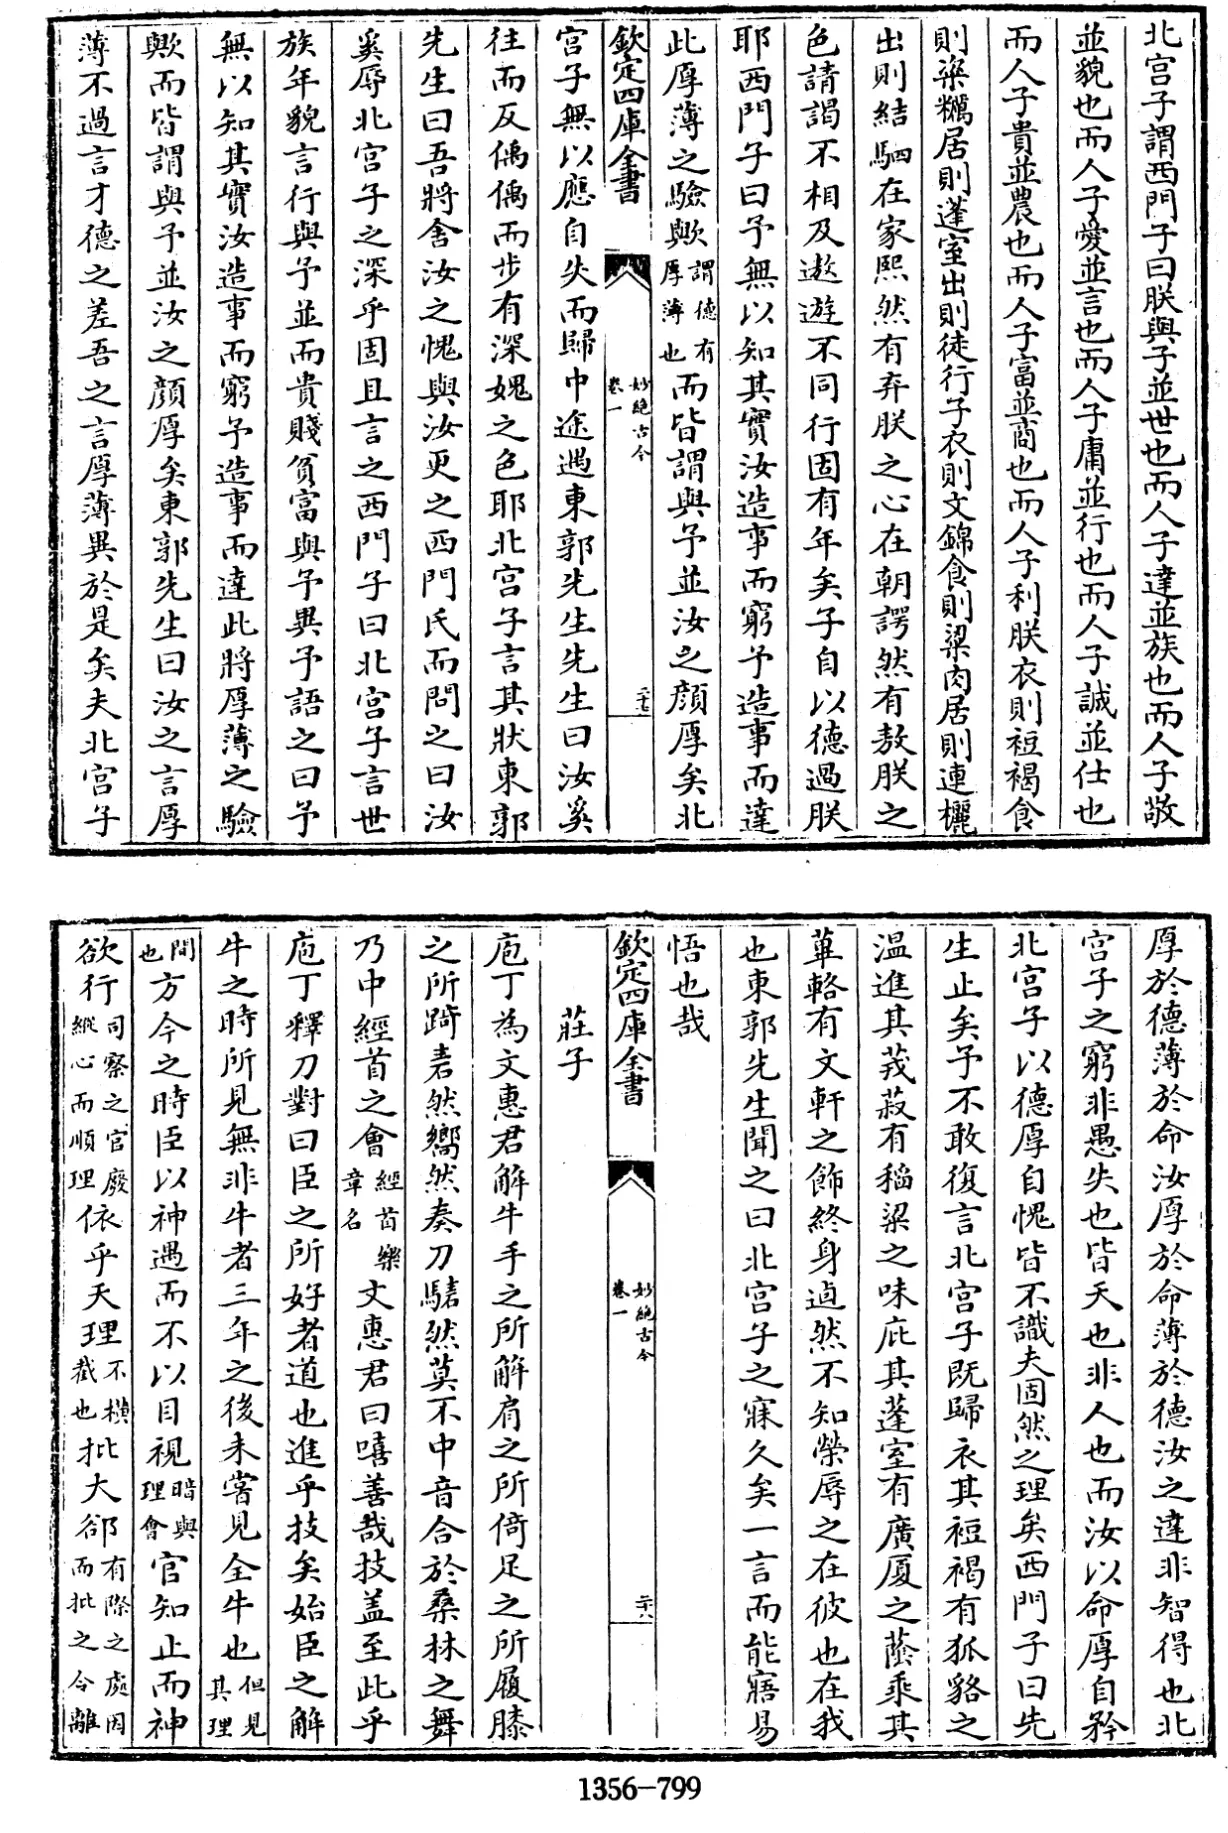 北宫子謂西門子曰朕與子並世也而人子達並族也而人子敬
並貌也而人子愛並言也而人子庸並行也而人子誠並仕也
而人子貴並農也而人子富並商也而人子利朕衣則裋褐食
則粢糲居則蓬室出則徒行子衣則文錦食則粱肉居則連欐
出則結駟在家熙然有弃朕之心在朝諤然有敖朕之
色請謁不相及遨遊不同行固有年矣子自以德過朕
耶西門子曰予無以知其實汝造事而窮予造事而達
此厚薄之驗歟謂德有厚薄也而皆謂與予並汝之顔厚矣北
欽定四庫全書
妙絶古今
卷一
二十七
宫子無以應自失而歸中途遇東郭先生先生曰汝奚
往而反偊偊而步有深媿之色耶北宫子言其狀東郭
先生曰吾將舍汝之愧與汝更之西門氏而問之曰汝
奚辱北宫子之深乎固且言之西門子曰北宫子言世
族年貌言行與予並而貴賤貧富與予異予語之曰予
無以知其實汝造事而窮予造事而達此將厚薄之驗
歟而皆謂與予並汝之顔厚矣東郭先生曰汝之言厚
薄不過言才德之差吾之言厚薄異於是矣夫北宫子
厚於德薄於命汝厚於命薄於德汝之達非智得也北
宫子之窮非愚失也皆天也非人也而汝以命厚自矜
北宫子以德厚自愧皆不識夫固然之理矣西門子曰先
生止矣予不敢復言北宫子既歸衣其裋褐有狐貉之
温進其茙菽有稻粱之味庇其蓬室有廣厦之蔭乘其
蓽輅有文軒之飾終身逌然不知榮辱之在彼也在我
也東郭先生聞之曰北宫子之寐久矣一言而能寤易
悟也哉
欽定四庫全書
妙絶古今
卷一
二十八
莊子
庖丁為文惠君解牛手之所解肩之所倚足之所履膝
之所踦砉然嚮然奏刀騞然莫不中音合於桑林之舞
乃中經首之會經首樂章名文惠君曰嘻善哉技盖至此乎
庖丁釋刀對曰臣之所好者道也進乎技矣始臣之解
牛之時所見無非牛者三年之後未嘗見全牛也但見其理
間也方今之時臣以神遇而不以目視暗與理會官知止而神
欲行司察之官廢縱心而順理依乎天理不横截也批大郤有際之處因而批之令離
1356-799